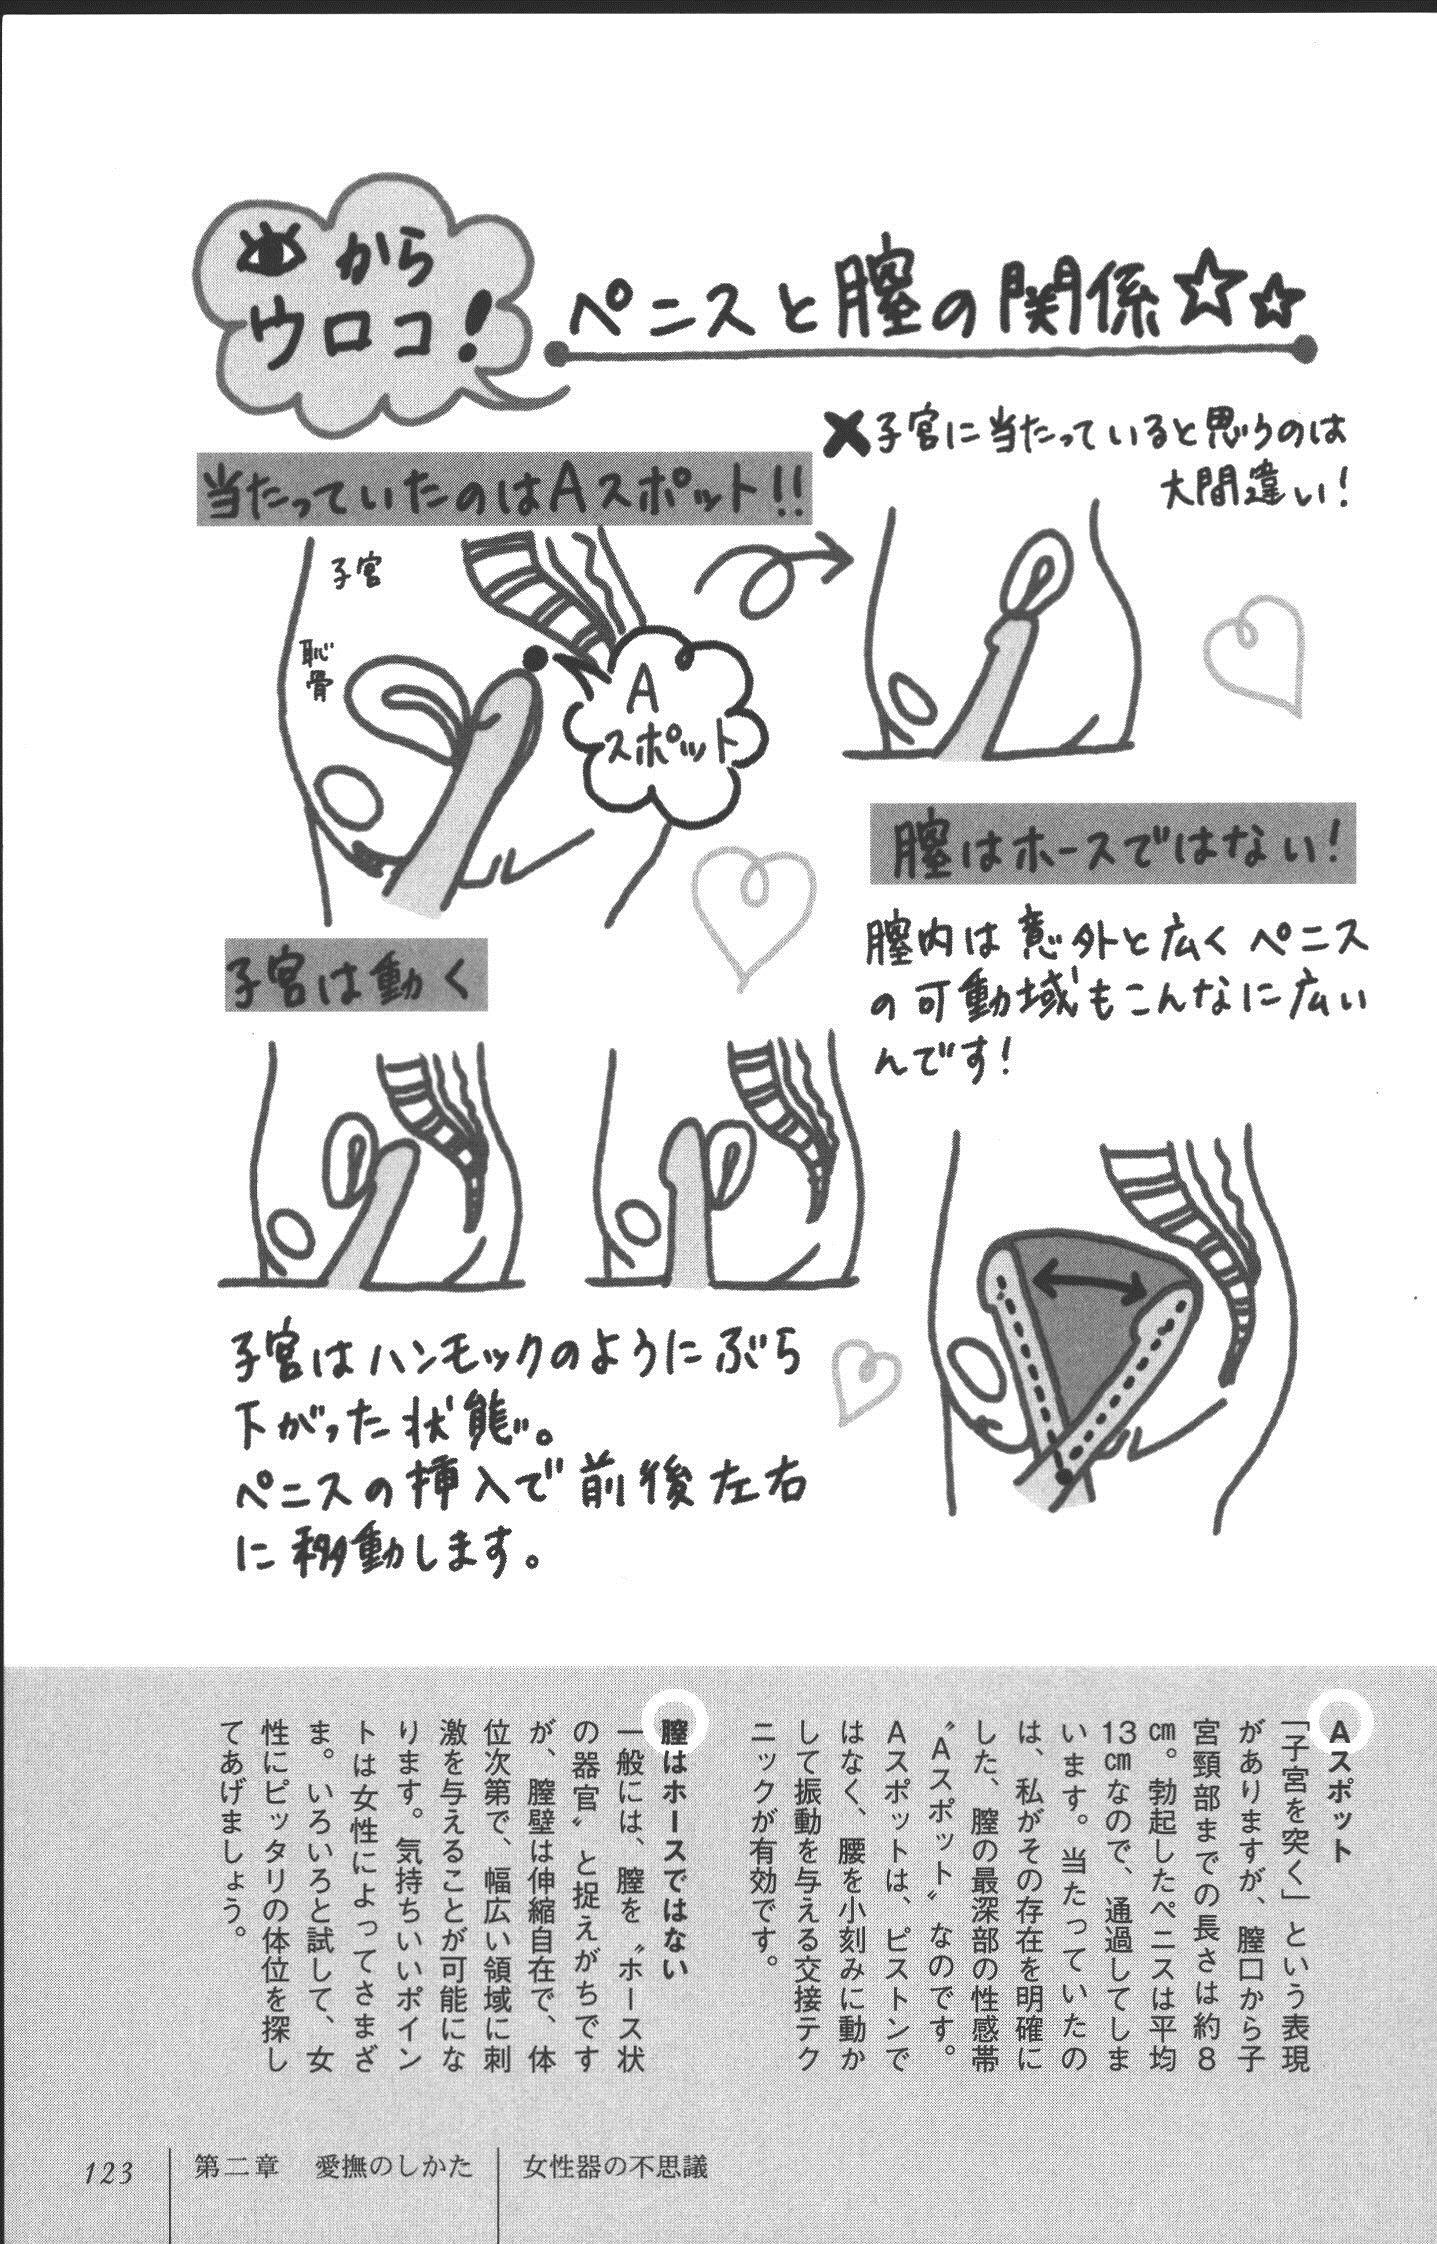 からウロコ!
ペニスと膣の関係☆☆
当たっていたのはAスポット!!
✖子宮に当たっていると思うのは
大間違い!
子宮
恥骨
A
スポット
膣はホースではない!
膣内は意外と広くペニス
の可動域もこんなに広い
んです!
子宮は動く
子宮はハンモックのようにぶら
下がった状態。
ペニスの挿入で前後左右
に移動します。
Aスポット
「子宮を突く」という表現
がありますが、膣口から子
宮頸部までの長さは約8
㎝。勃起したペニスは平均
13㎝なので、通過してしま
います。当たっていたの
は、私がその存在を明確に
した、膣の最深部の性感帯
〝Aスポット〟なのです。
Aスポットは、ピストンで
はなく、腰を小刻みに動か
して振動を与える交接テク
ニックが有効です。
膣はホースではない
一般には、膣を〝ホース状
の器官〟と捉えがちです
が、膣壁は伸縮自在で、体
位次第で、幅広い領域に刺
激を与えることが可能にな
ります。気持ちいいポイン
トは女性によってさまざ
ま。いろいろと試して、女
性にピッタリの体位を探し
てあげましょう。
123
第二章 愛撫のしかた
女性器の不思議